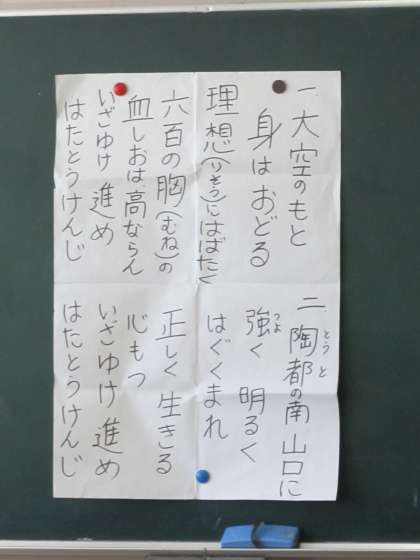 一.大空のもと
身はおどる
理想(りそう)にはばたく
六百の胸(むね)の
血しおは高ならん
いざゆけ 進め
はたとうけんじ
二.陶都の南 山口に
とうと
強く 明るく
つよ
はぐくまれ
正しく 生きる
心もつ
いざゆけ 進め
はたとうけんじ